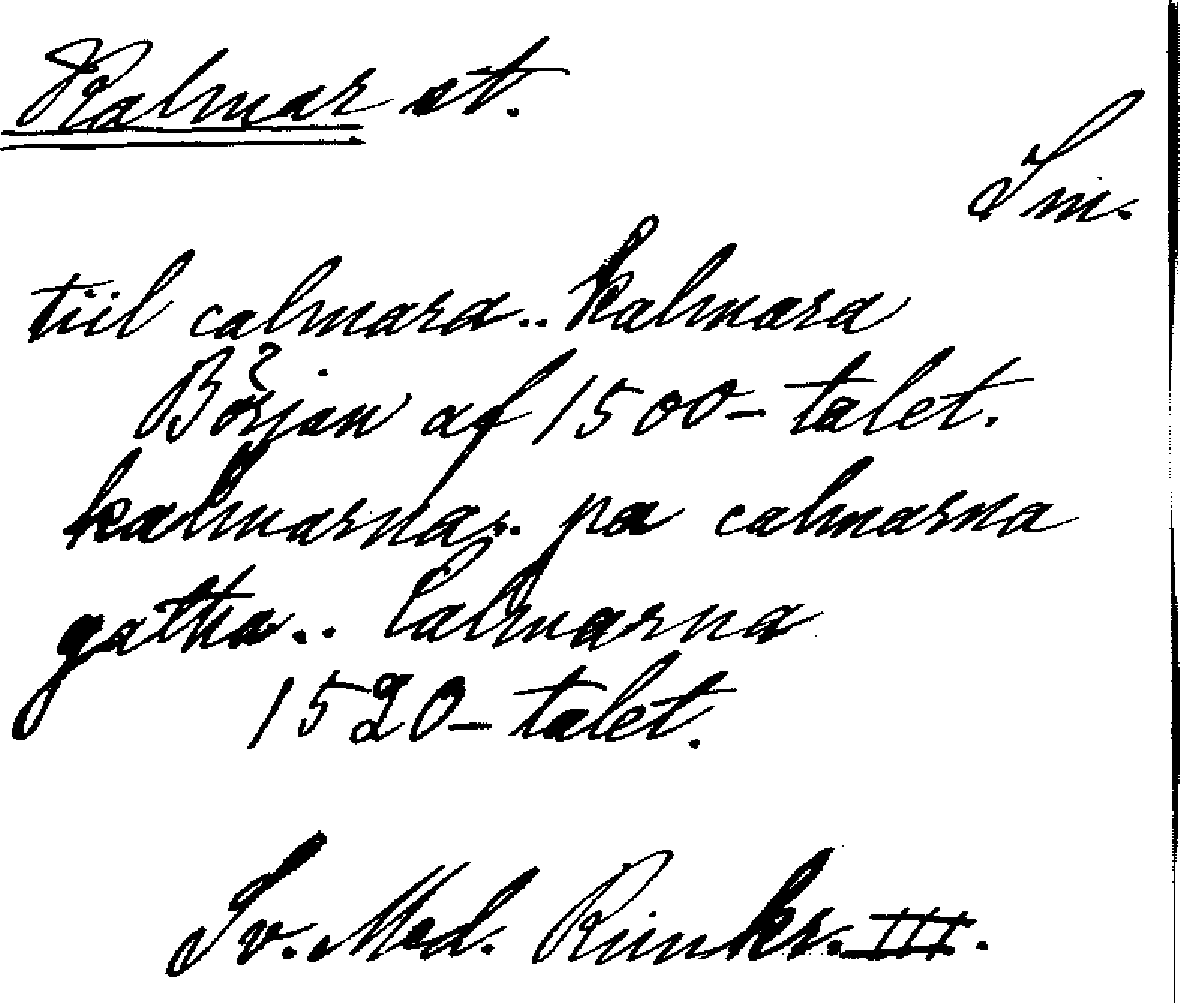 Kalmar st.
Sm.
tiil calmara.. kalmara
Början af 1500-talet.
kalmarna.. pa calmarna
gatha.. Calmarna
1520-talet.
Sv. Med. Rimkr. III.